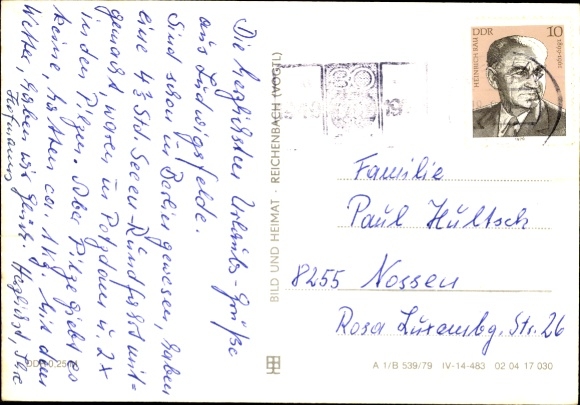 Die herzlichsten Urlaubs-Grüße
aus Ludwigsfelde.
Sind schon in Berlin gewesen, haben
eine 4 3/4 Std. Seeen-Rundfahrt mit-
gemacht, waren in Potsdam u. 2x
in den Pilzen. Aber Pilze giebt es
keine, hatten ca. 1 kg. Mit dem
Wetter, haben wir Glück. Herzlichst, Ihre
Hofmanns
BILD UND HEIMAT · REICHENBACH (VOGTL)
DDR 10
HEINRICH RAU
1899-1961
1979
Familie
Paul Hultsch
8255 Nossen
Rosa Luxembg. Str. 26
A 1/B 539/79 IV-14-483 02 04 17 030